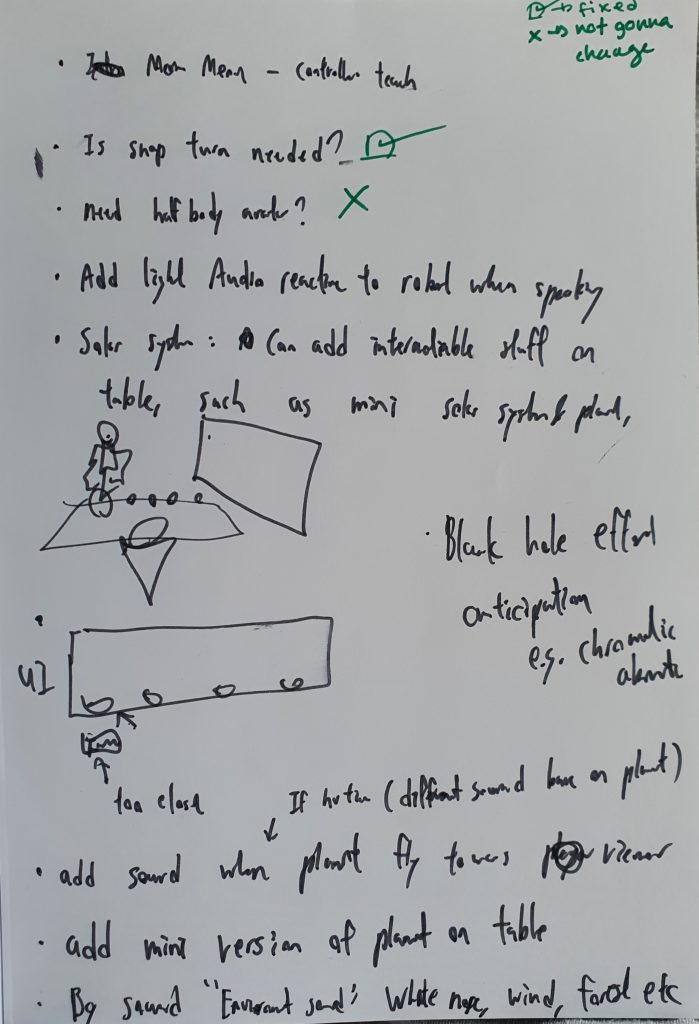 → fixed
x → not gonna
change
• Menu - controller teach
• Is snap turn needed?
• need half body ?
• Add light Audio reactive to robot when
• Solar system: Can add stuff on
table, such as mini solar system & planet,
• Black hole effect
anticipation
e.g. chromatic
• UI
too close
If (different sound base on planet)
• add sound when planet fly viewer
• add mini version of planet on table
• Bg sound " sound" White , wind, etc